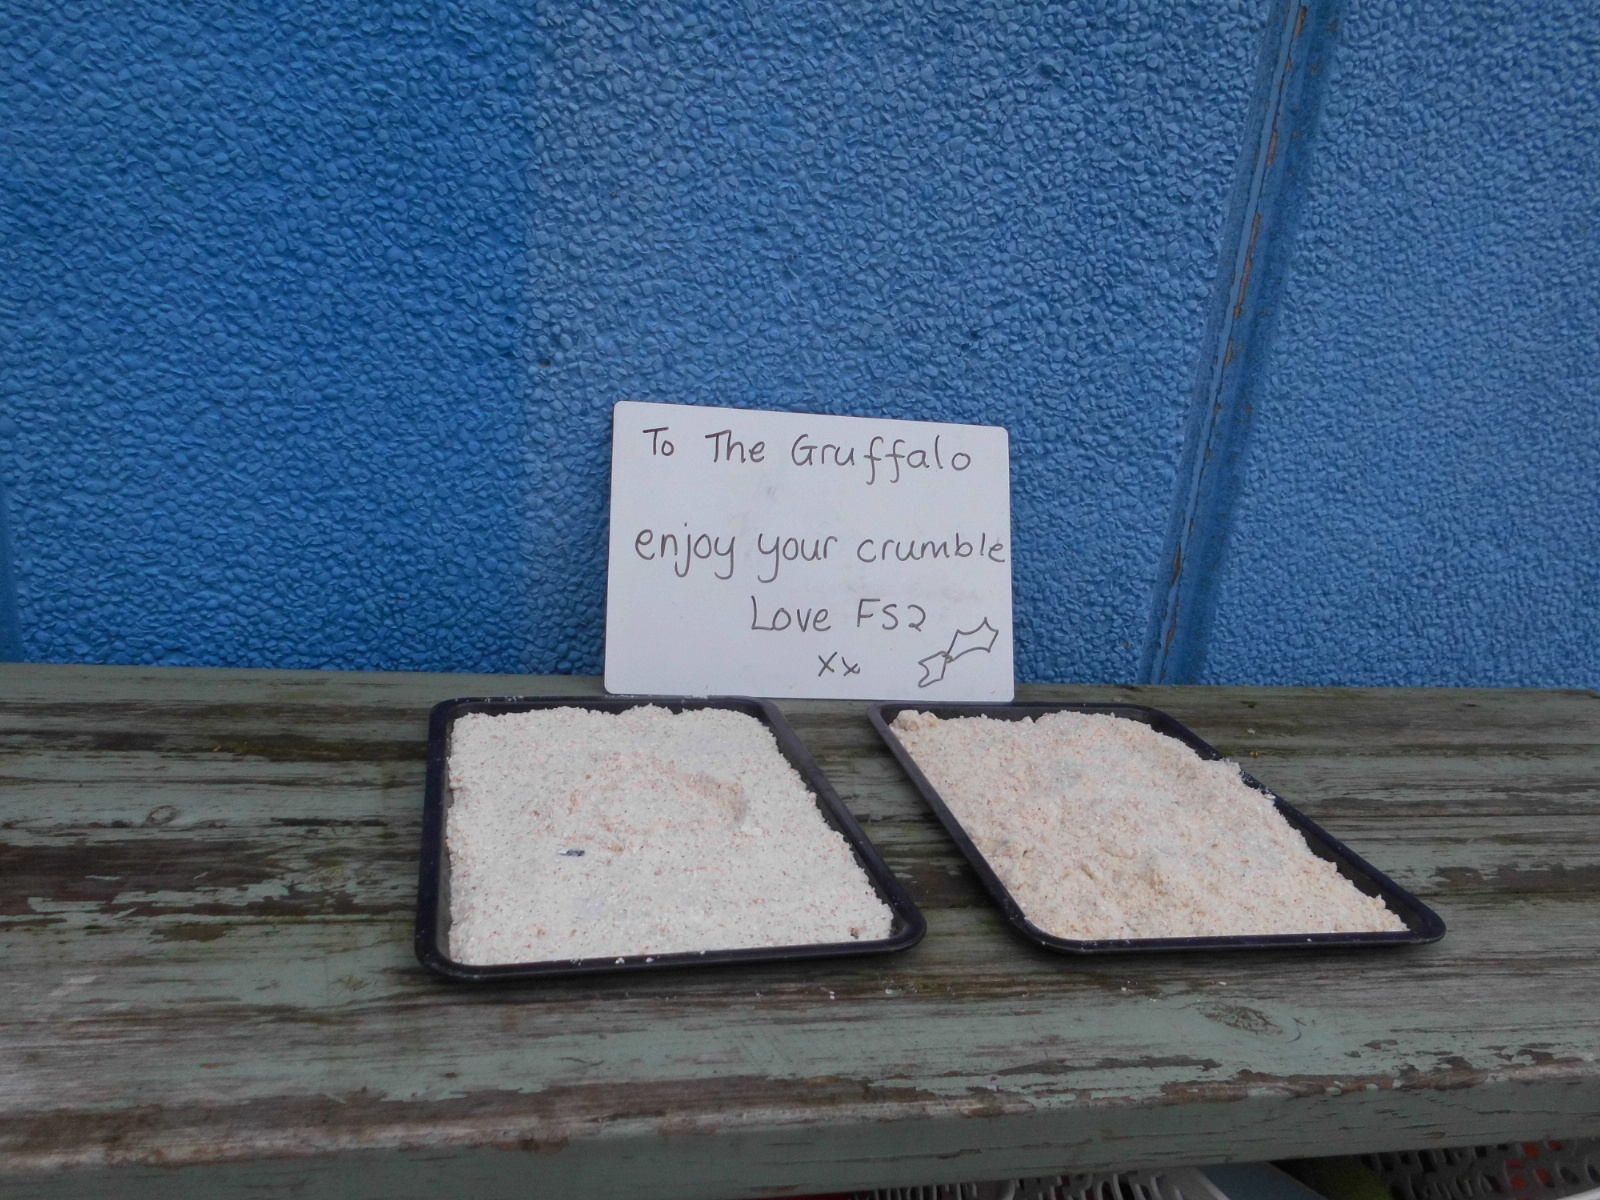 To The Gruffalo
enjoy your crumble
Love FS2
xx